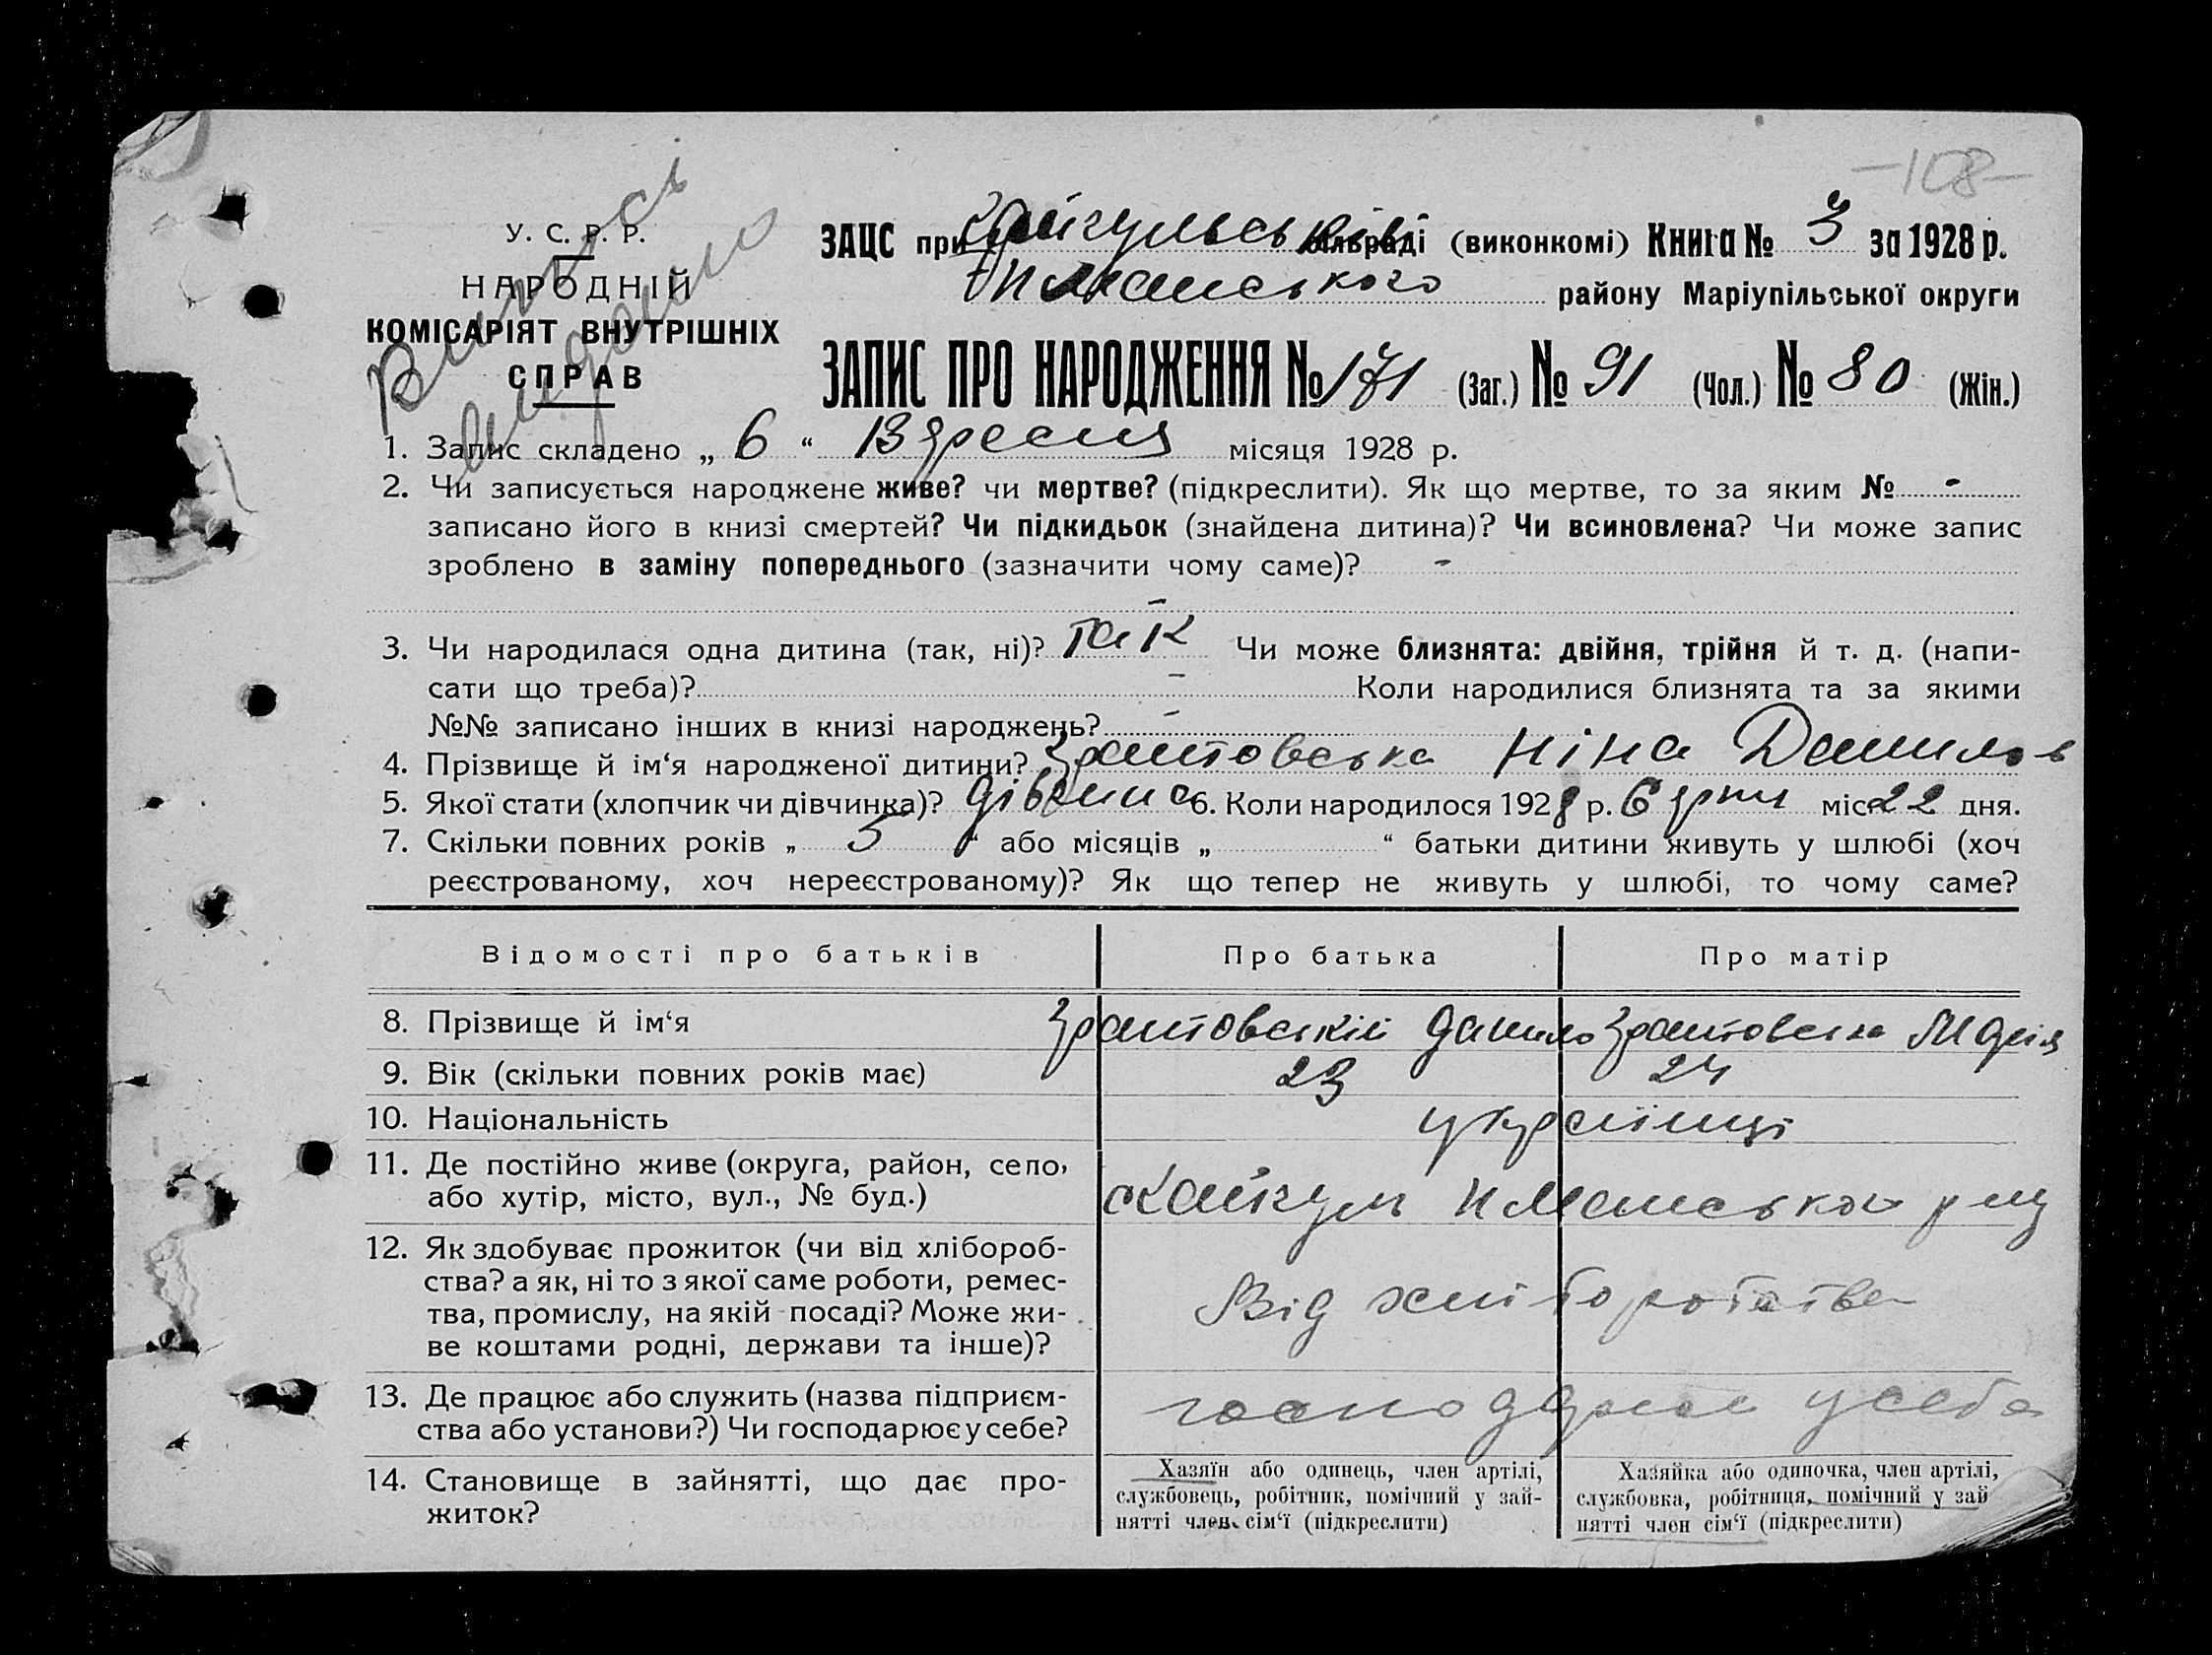 -108-
Випись
видано
У. С. Р. Р.
НАРОДНІЙ
КОМІСАРІЯТ ВНУТРІШНІХ
СПРАВ
ЗАЦС при сільраді (виконкомі) Книга № 3 за 1928 р.
району Маріупільської округи
ЗАПИС ПРО НАРОДЖЕННЯ № 171 (Заг.) № 91 (Чол.) № 80 (Жін.)
1. Запис складено „ 6 “ Вересня місяця 1928 р.
2. Чи записується народжене живе? чи мертве? (підкреслити). Як що мертве, то за яким № -
записано його в книзі смертей? Чи підкидьок (знайдена дитина)? Чи всиновлена? Чи може запис
зроблено в заміну попереднього (зазначити чому саме)? -
-
3. Чи народилася одна дитина (так, ні)? так Чи може близнята: двійня, трійня й т. д. (напи-
сати що треба)? - Коли народилися близнята та за якими
№№ записано інших в книзі народжень? -
4. Прізвище й ім‘я народженої дитини? Ніна Данилов
5. Якої стати (хлопчик чи дівчинка)? дівчина 6. Коли народилося 1928 р. міс. 22 дня.
7. Скільки повних років „ 5 “ або місяців „ “ батьки дитини живуть у шлюбі (хоч
реєстрованому, хоч нереєстрованому)? Як що тепер не живуть у шлюбі, то чому саме?
Відомості про батьків Про батька Про матір
8. Прізвище й ім‘я Данило Марія
9. Вік (скільки повних років має) 23 24
10. Національність українці
11. Де постійно живе (округа, район, село,
або хутір, місто, вул., № буд.)
12. Як здобуває прожиток (чи від хлібороб-
ства? а як, ні то з якої саме роботи, ремес-
тва, промислу, на якій посаді? Може жи-
ве коштами родні, держави та інше)?
Від хліборобства
13. Де працює або служить (назва підприєм-
ства або установи?) Чи господарює у себе?
у себе
14. Становище в зайнятті, що дає про-
житок?
Хазяїн або одинець, член артілі,
службовець, робітник, помічний у зай-
нятті член сім‘ї (підкреслити)
Хазяйка або одиночка, член артілі,
службовка, робітниця, помічний у зай
нятті член сім‘ї (підкреслити)